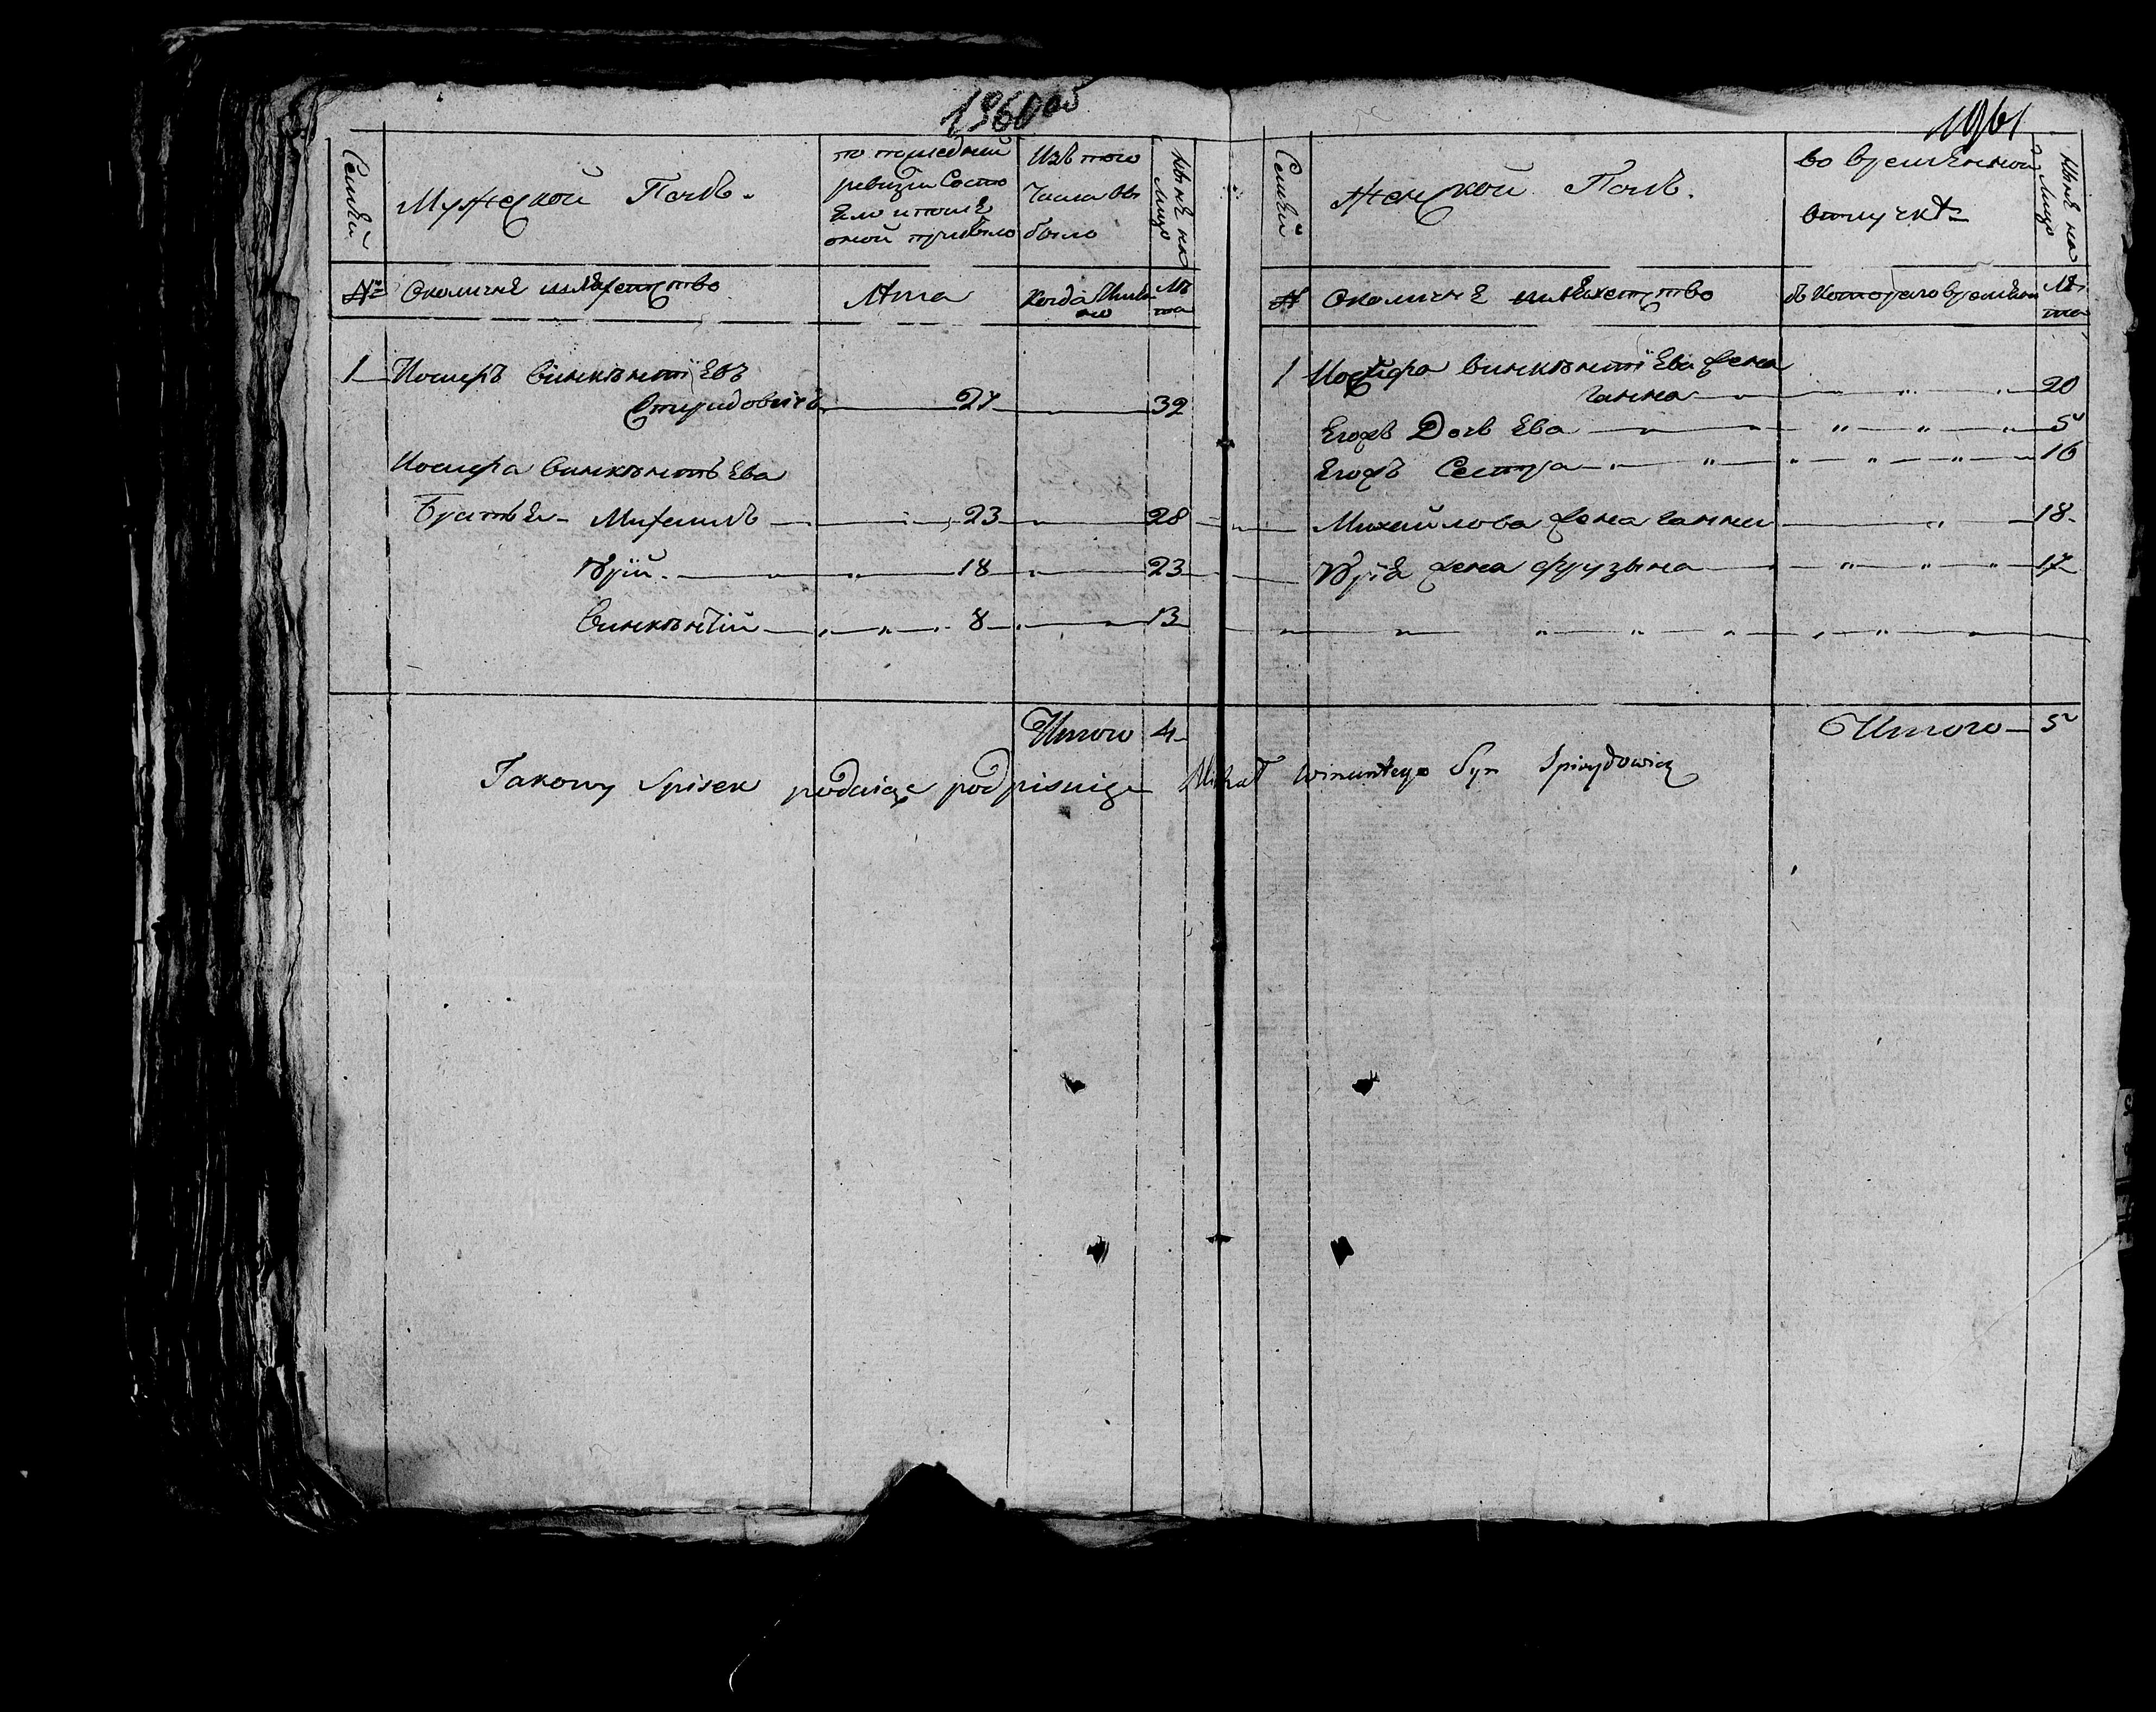 1960об
1961
Семьи
Мужеской Полъ.
по последней
ревизии Состо
яло и после
оной прибыло
Изъ того
числа вы
было
Ныне на
Лицо
№
Околичне шляхетство
Лета
Когда Имен
но
Ле
та
1 Иосифъ Винкентіевъ
Спиридовичъ 27 32
Иосифа Винкентьева
Братья Михаилъ 23 28
Юрій 18 23
Винкентій 8 13
Итого 4
Семьи
Женской Полъ.
во временной
отлучке
Ныне на
Лицо
№
Околичне шляхетство
съ Которого времени
Ле
та
1 Иосифа Винкентіева жена
Ганна 20
Егожъ Дочь Ева 5
Егожъ Сестра 16
Михайлова жена Ганна 18
Юрія жена Фрузына 17
Итого 5
Takowy Spisek podaiąc podpisuię Michał Wincentego Syn Spirydowicz